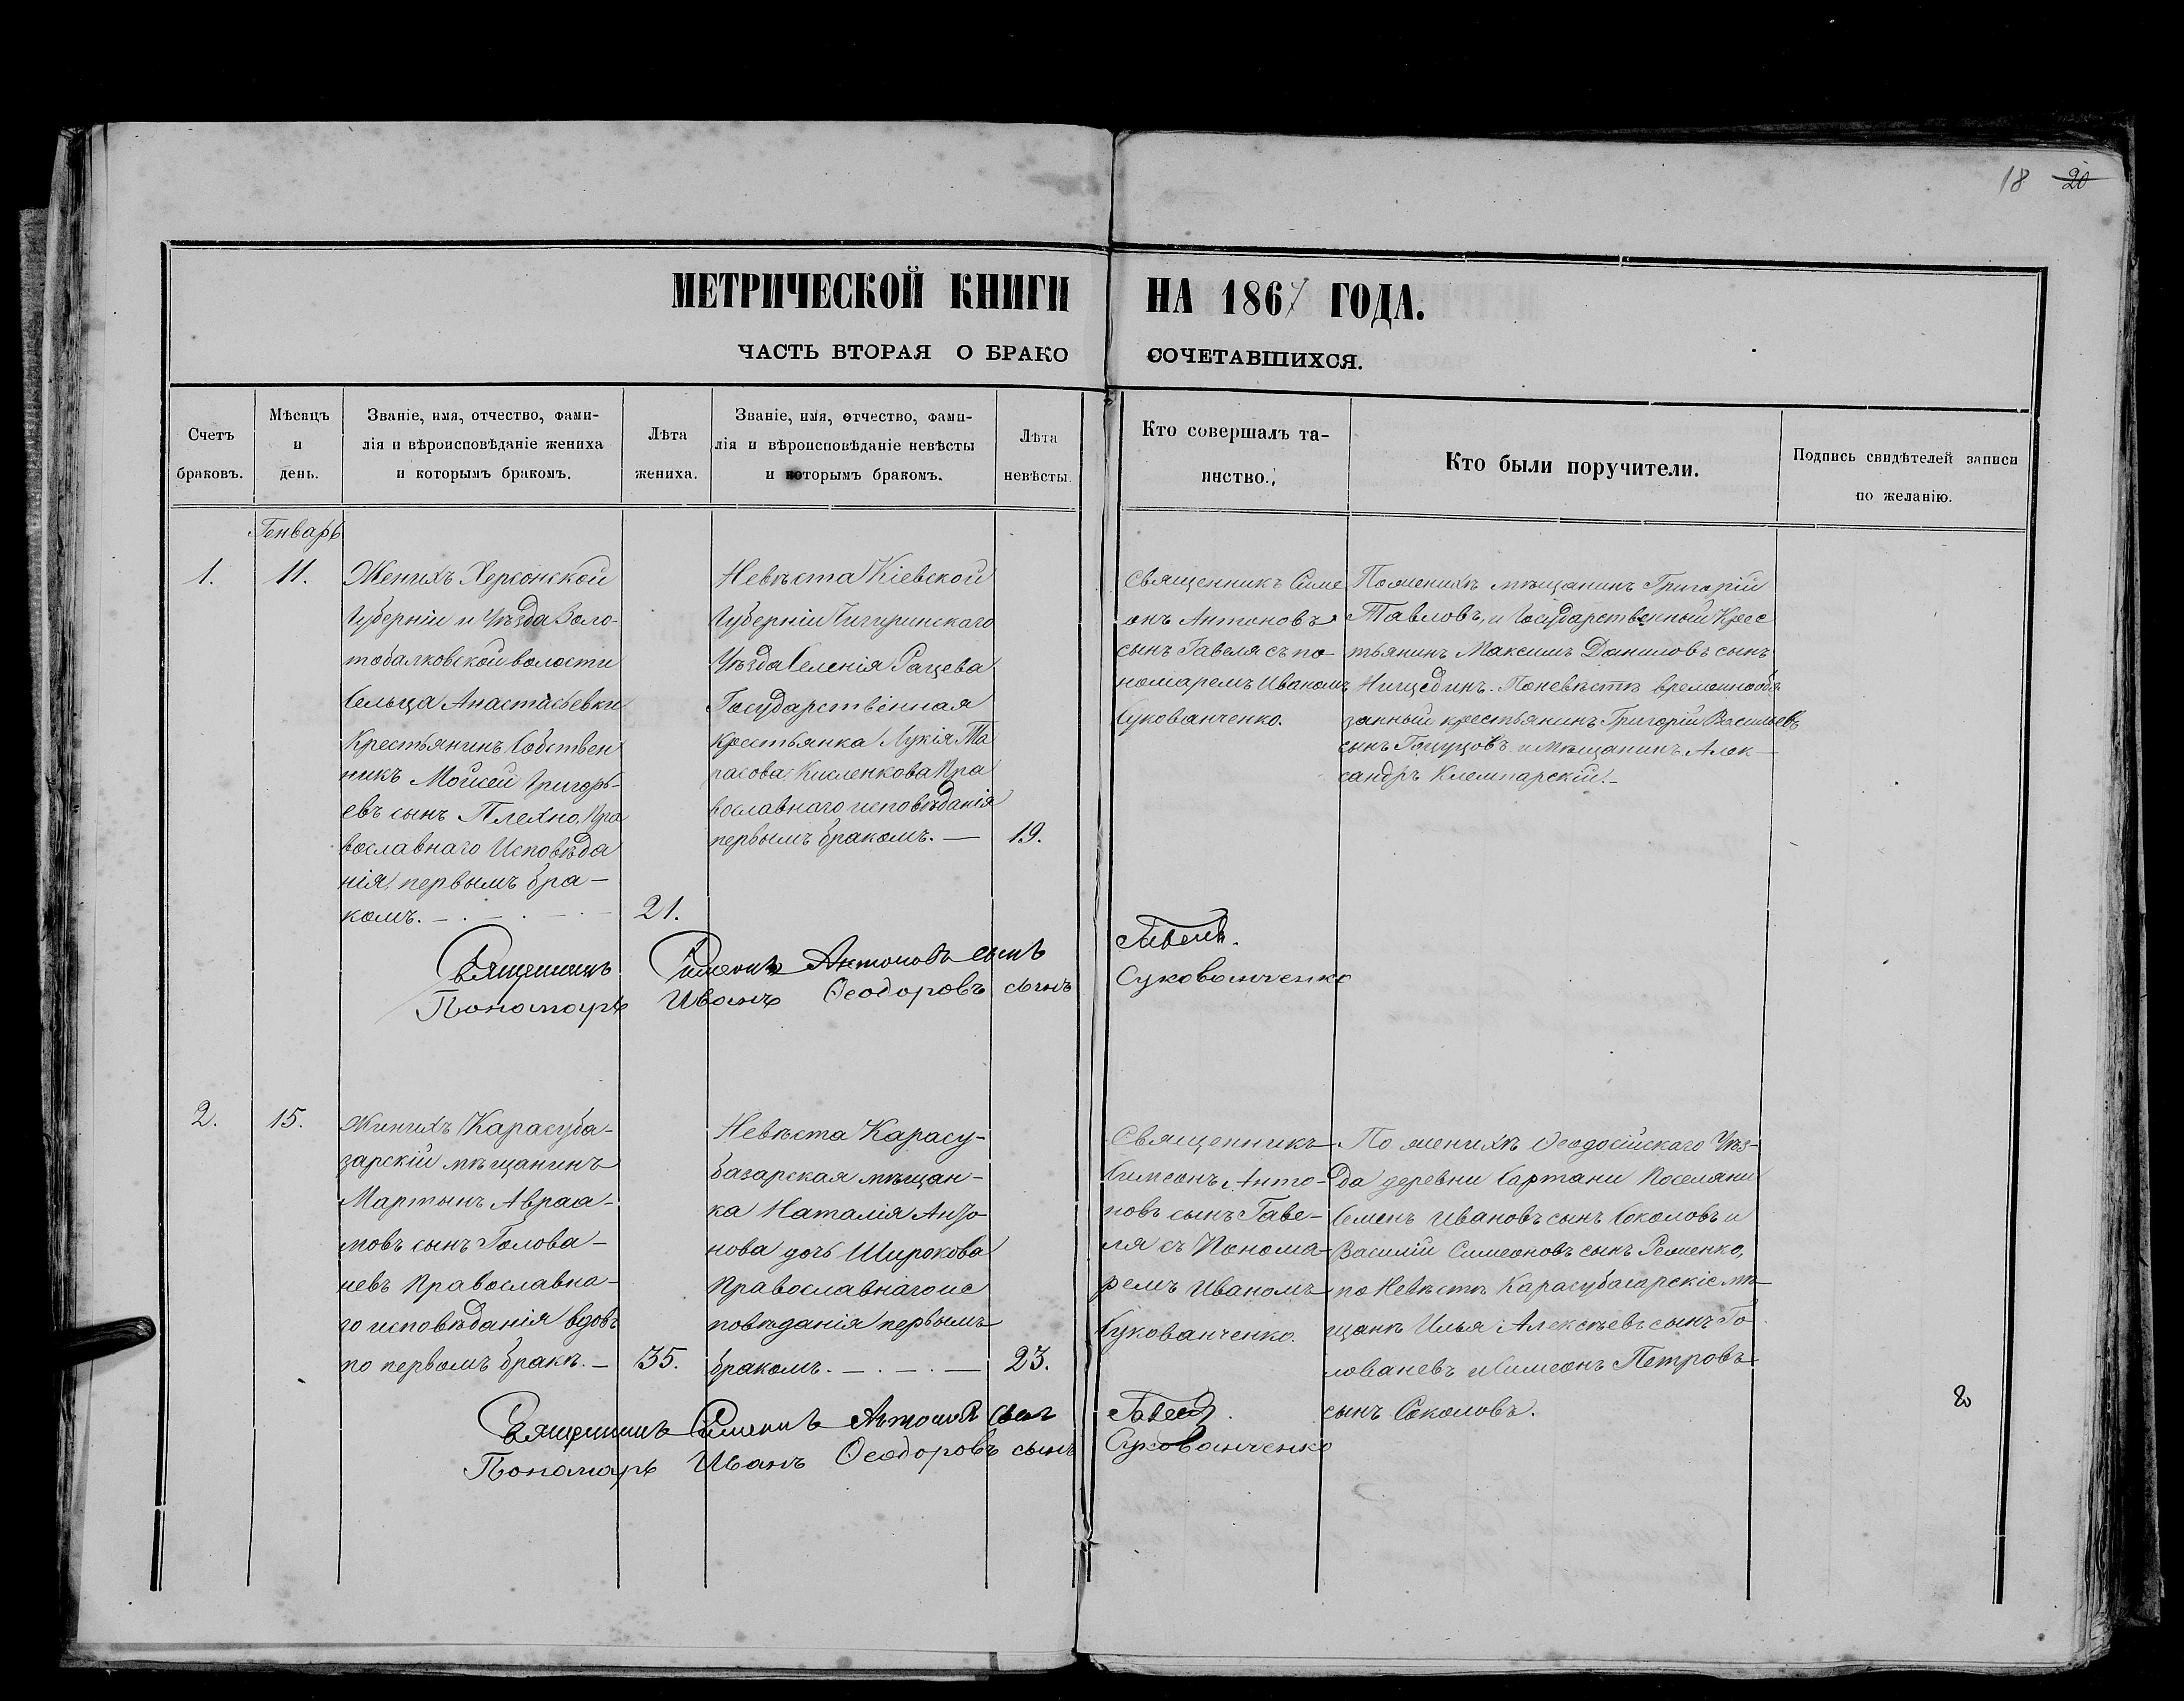 18 20
МЕТРИЧЕСКОЙ КНИГИ НА 1867 ГОДА.
ЧАСТЬ ВТОРАЯ О БРАКОСОЧЕТАВШИХСЯ.
Счетъ
браковъ.
Мѣсяцъ
и
день.
Званіе, имя, отчество, фами-
лія и вѣроисповѣданіе жениха
и которымъ бракомъ.
Лѣта
жениха.
Званіе, имя, отчество, фами-
лія и вѣроисповѣданіе невѣсты
и которымъ бракомъ.
Лѣта
невѣсты.
Кто совершалъ та-
инство.
Кто были поручители.
Подпись свидѣтелей записи
по желанію.
Генварь
1.
11.
Женихъ Херсонской
Губерніи и Уѣзда Золо-
тобалковской волости
Сельца Анастасьевки
Крестьянинъ Собствен
никъ Мойсей Григорь-
евъ сынъ Плехно, Пра
вославнаго Исповѣда
нія, первымъ бра-
комъ.
21.
Невѣста Кіевской
Губерніи Чигиринскаго
Уѣзда Селенія Рацева
Государственная
Крестьянка Лукія Та
расова Кисленкова Пра
вославнаго исповѣданія
первымъ бракомъ.
19.
Священникъ Симе
онъ Антоновъ
сынъ Гавеля съ по
номаремъ Иваномъ
Сукованченко.
По женихѣ мѣщанинъ Григорій
Павловъ, и Государственный Крес
тьянинъ Максимъ Даниловъ сынъ
По невѣстѣ временнообя
занный крестьянинъ Григорій Васильевъ
сынъ и Мѣщанинъ Алек-
сандръ
Священникъ Симеонъ Антоновъ сынъ Гавеля.
Пономарь Иванъ Ѳеодоровъ сынъ Сукованченко
2.
15.
Женихъ Карасуба-
зарскій мѣщанинъ
Мартынъ Авраа-
мовъ сынъ Голова-
невъ Православна-
го исповѣданія вдовъ
по первомъ бракѣ.
35.
Невѣста Карасу-
базарская мѣщан-
ка Наталія Анто
нова дочь Широкова
Православнаго ис
повѣданія первымъ
бракомъ.
23.
Священникъ
Симеонъ Анто-
новъ сынъ Гаве-
ля съ Понома-
ремъ Иваномъ
Сукованченко.
По женихѣ Ѳеодосійскаго Уѣз-
да деревни Сартани Поселяни
Семенъ Ивановъ сынъ Соколовъ и
Василій Симеоновъ сынъ
по Невѣстѣ Карасубазарскіе мѣ
щане Илья Алексѣевъ сынъ Го
ловановъ и Симеонъ Петровъ
сынъ Соколовъ.
Священникъ Симеонъ Антоновъ сынъ Гавеля.
Пономарь Иванъ Ѳеодоровъ сынъ Сукованченко